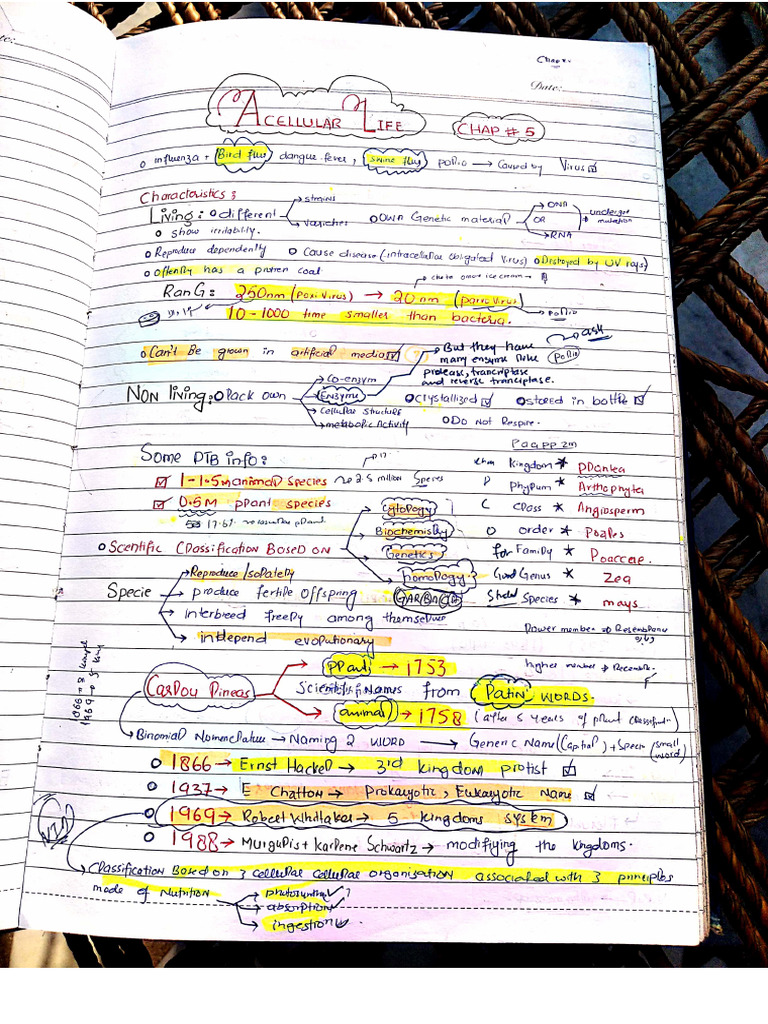 Chap
Date:
ACELLULAR LIFE CHAP # 5
influenza + Bird flu dangue fever, swine flu, polio → Caused by Virus
Characteristics:
strains
Living: different varieties Own Genetic material DNA OR RNA undergoe mutation
show irritability.
Reproduce dependently Cause disease (intracellular obligated virus) Destroyed by UV rays)
Oftenly has a protien coat
RanG: 250nm (Poxi Virus) → 20nm (parvo virus) Polio
10 - 1000 time smaller than bacteria.
Can't Be grown in artificial media But they have many enzyme like Polio ask
protease, tranciptase and reverse tranciptase.
Co-enzym
NON living: Lack own Enzyme Crystallized stored in bottle
cellular structure
metabolic Activity Do Not Respire.
Some PTB info:
1-1.5m animal species 2.5 million Species
0.5M plant species
Kingdom * plantea
P Phylum * Arthophyta
C Class * Angiosperm
O order * Poales
for Family * Poaceae
Good Genus * Zea
Species * mays
Scentific Classification BASED ON Cytology
Biochemistry
Genetics
homology
Specie Reproduce Isolately
produce fertile offspring
interbreed freely among themselve
independ evolutionary
Carlou lineas plant → 1753
Scientific Names from Latin words.
animal → 1758 (after 5 years of plant classification)
Binomial Nomenclature → Naming 2 word → Generic Name (Capital) + Specie (small word)
1866 → Ernst Hackel → 3rd kingdom protist
1937 → E Chatton → Prokaryotic, Eukaryotic Name
1969 → Robert Whittaker → 5 kingdoms system
1988 → Murgulis + Karlene Schwartz → modifiying the kngdoms.
Classification Based on 3 cellular cellular organisation associated with 3 principles
mode of Nutrition photosynthe
absorption
ingestion